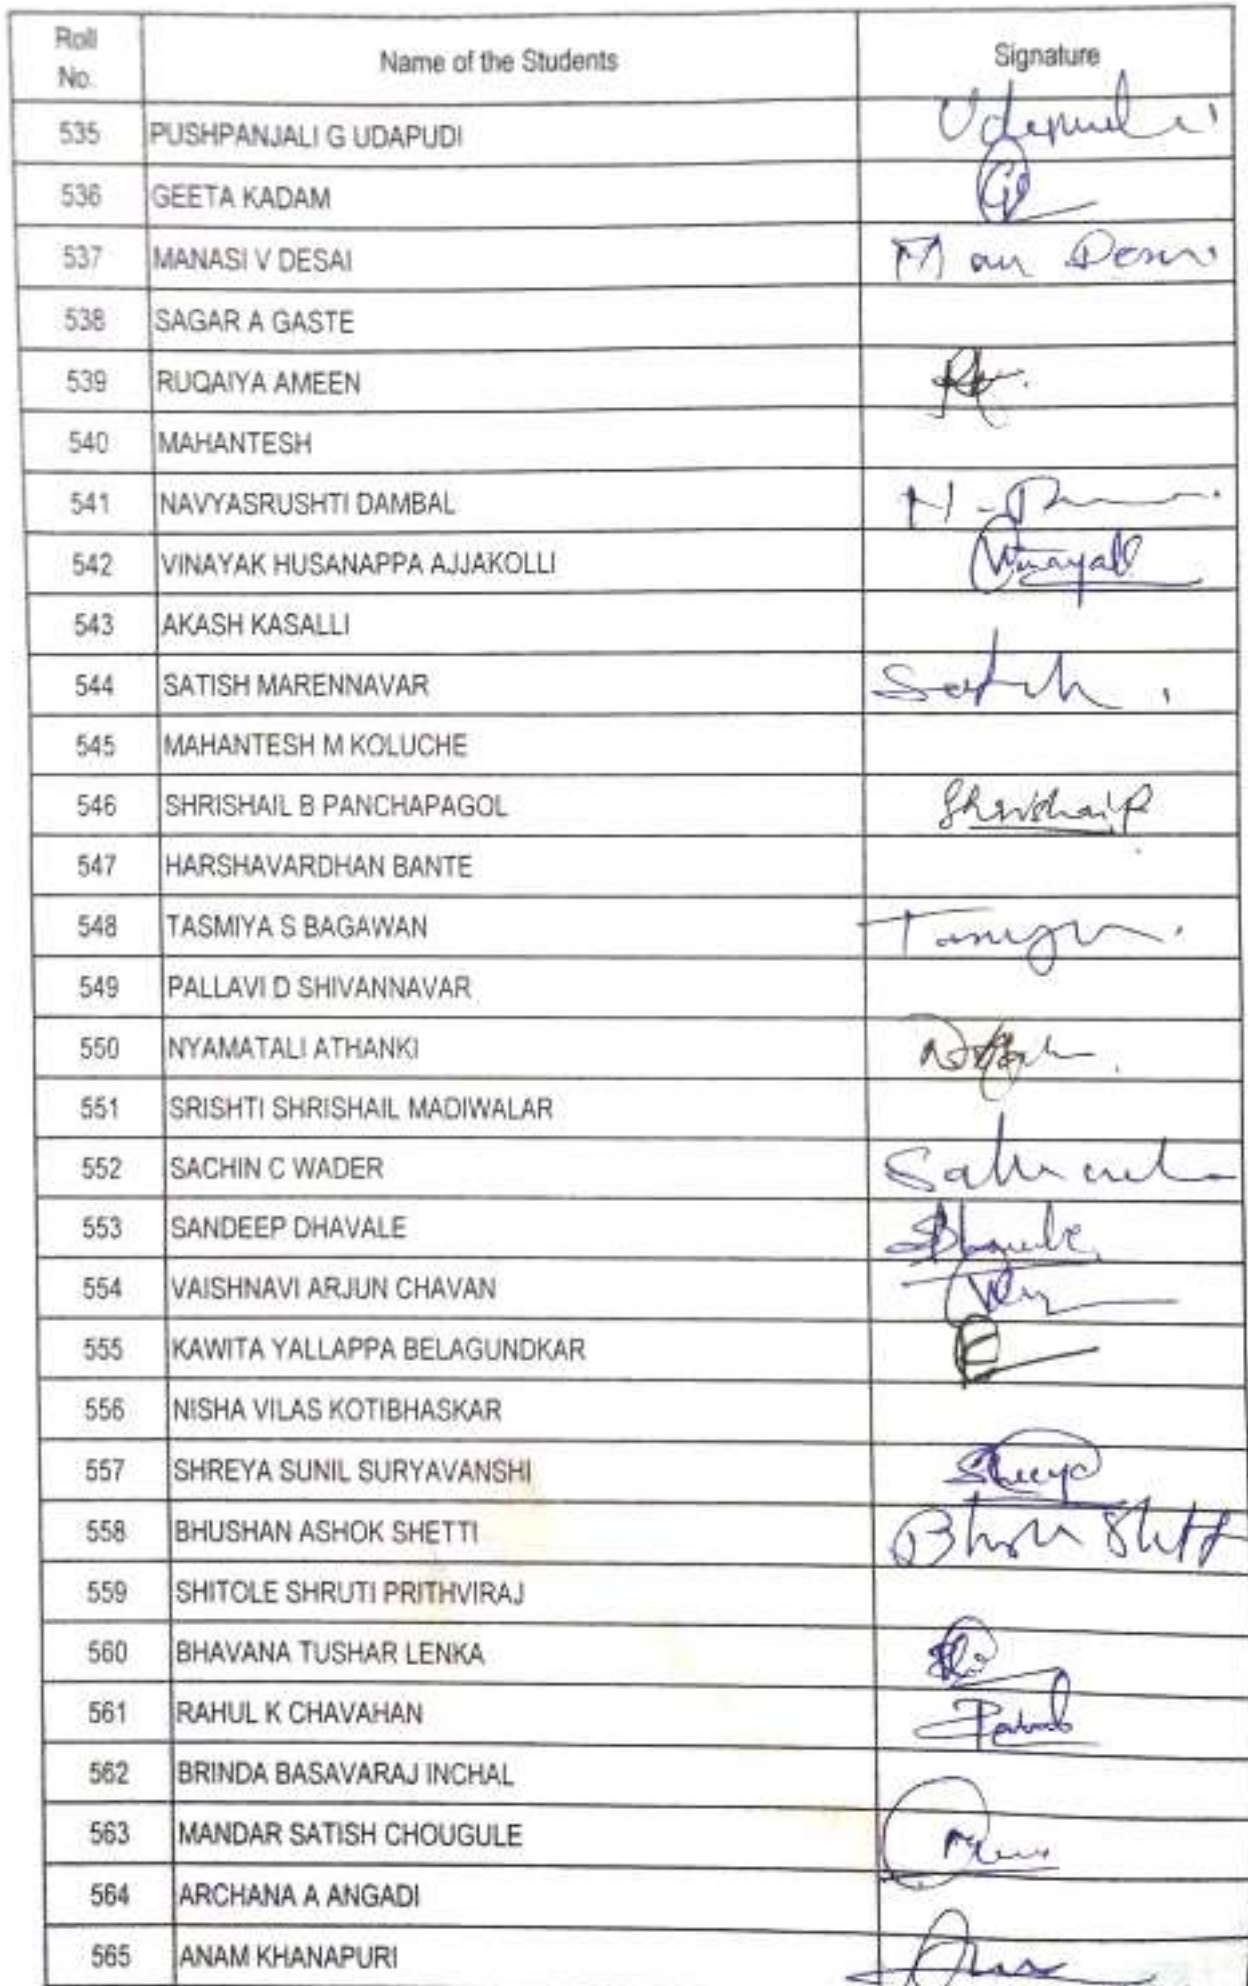 Roll No. Name of the Students Signature
535 PUSHPANJALI G UDAPUDI
536 GEETA KADAM
537 MANASI V DESAI
538 SAGAR A GASTE
539 RUQAIYA AMEEN
540 MAHANTESH
541 NAVYASRUSHTI DAMBAL
542 VINAYAK HUSANAPPA AJJAKOLLI Vinayak
543 AKASH KASALLI
544 SATISH MARENNAVAR
545 MAHANTESH M KOLUCHE
546 SHRISHAIL B PANCHAPAGOL Shrishail P
547 HARSHAVARDHAN BANTE
548 TASMIYA S BAGAWAN
549 PALLAVI D SHIVANNAVAR
550 NYAMATALI ATHANKI
551 SRISHTI SHRISHAIL MADIWALAR
552 SACHIN C WADER
553 SANDEEP DHAVALE
554 VAISHNAVI ARJUN CHAVAN
555 KAWITA YALLAPPA BELAGUNDKAR
556 NISHA VILAS KOTIBHASKAR
557 SHREYA SUNIL SURYAVANSHI Shreya
558 BHUSHAN ASHOK SHETTI
559 SHITOLE SHRUTI PRITHVIRAJ
560 BHAVANA TUSHAR LENKA
561 RAHUL K CHAVAHAN
562 BRINDA BASAVARAJ INCHAL
563 MANDAR SATISH CHOUGULE
564 ARCHANA A ANGADI
565 ANAM KHANAPURI